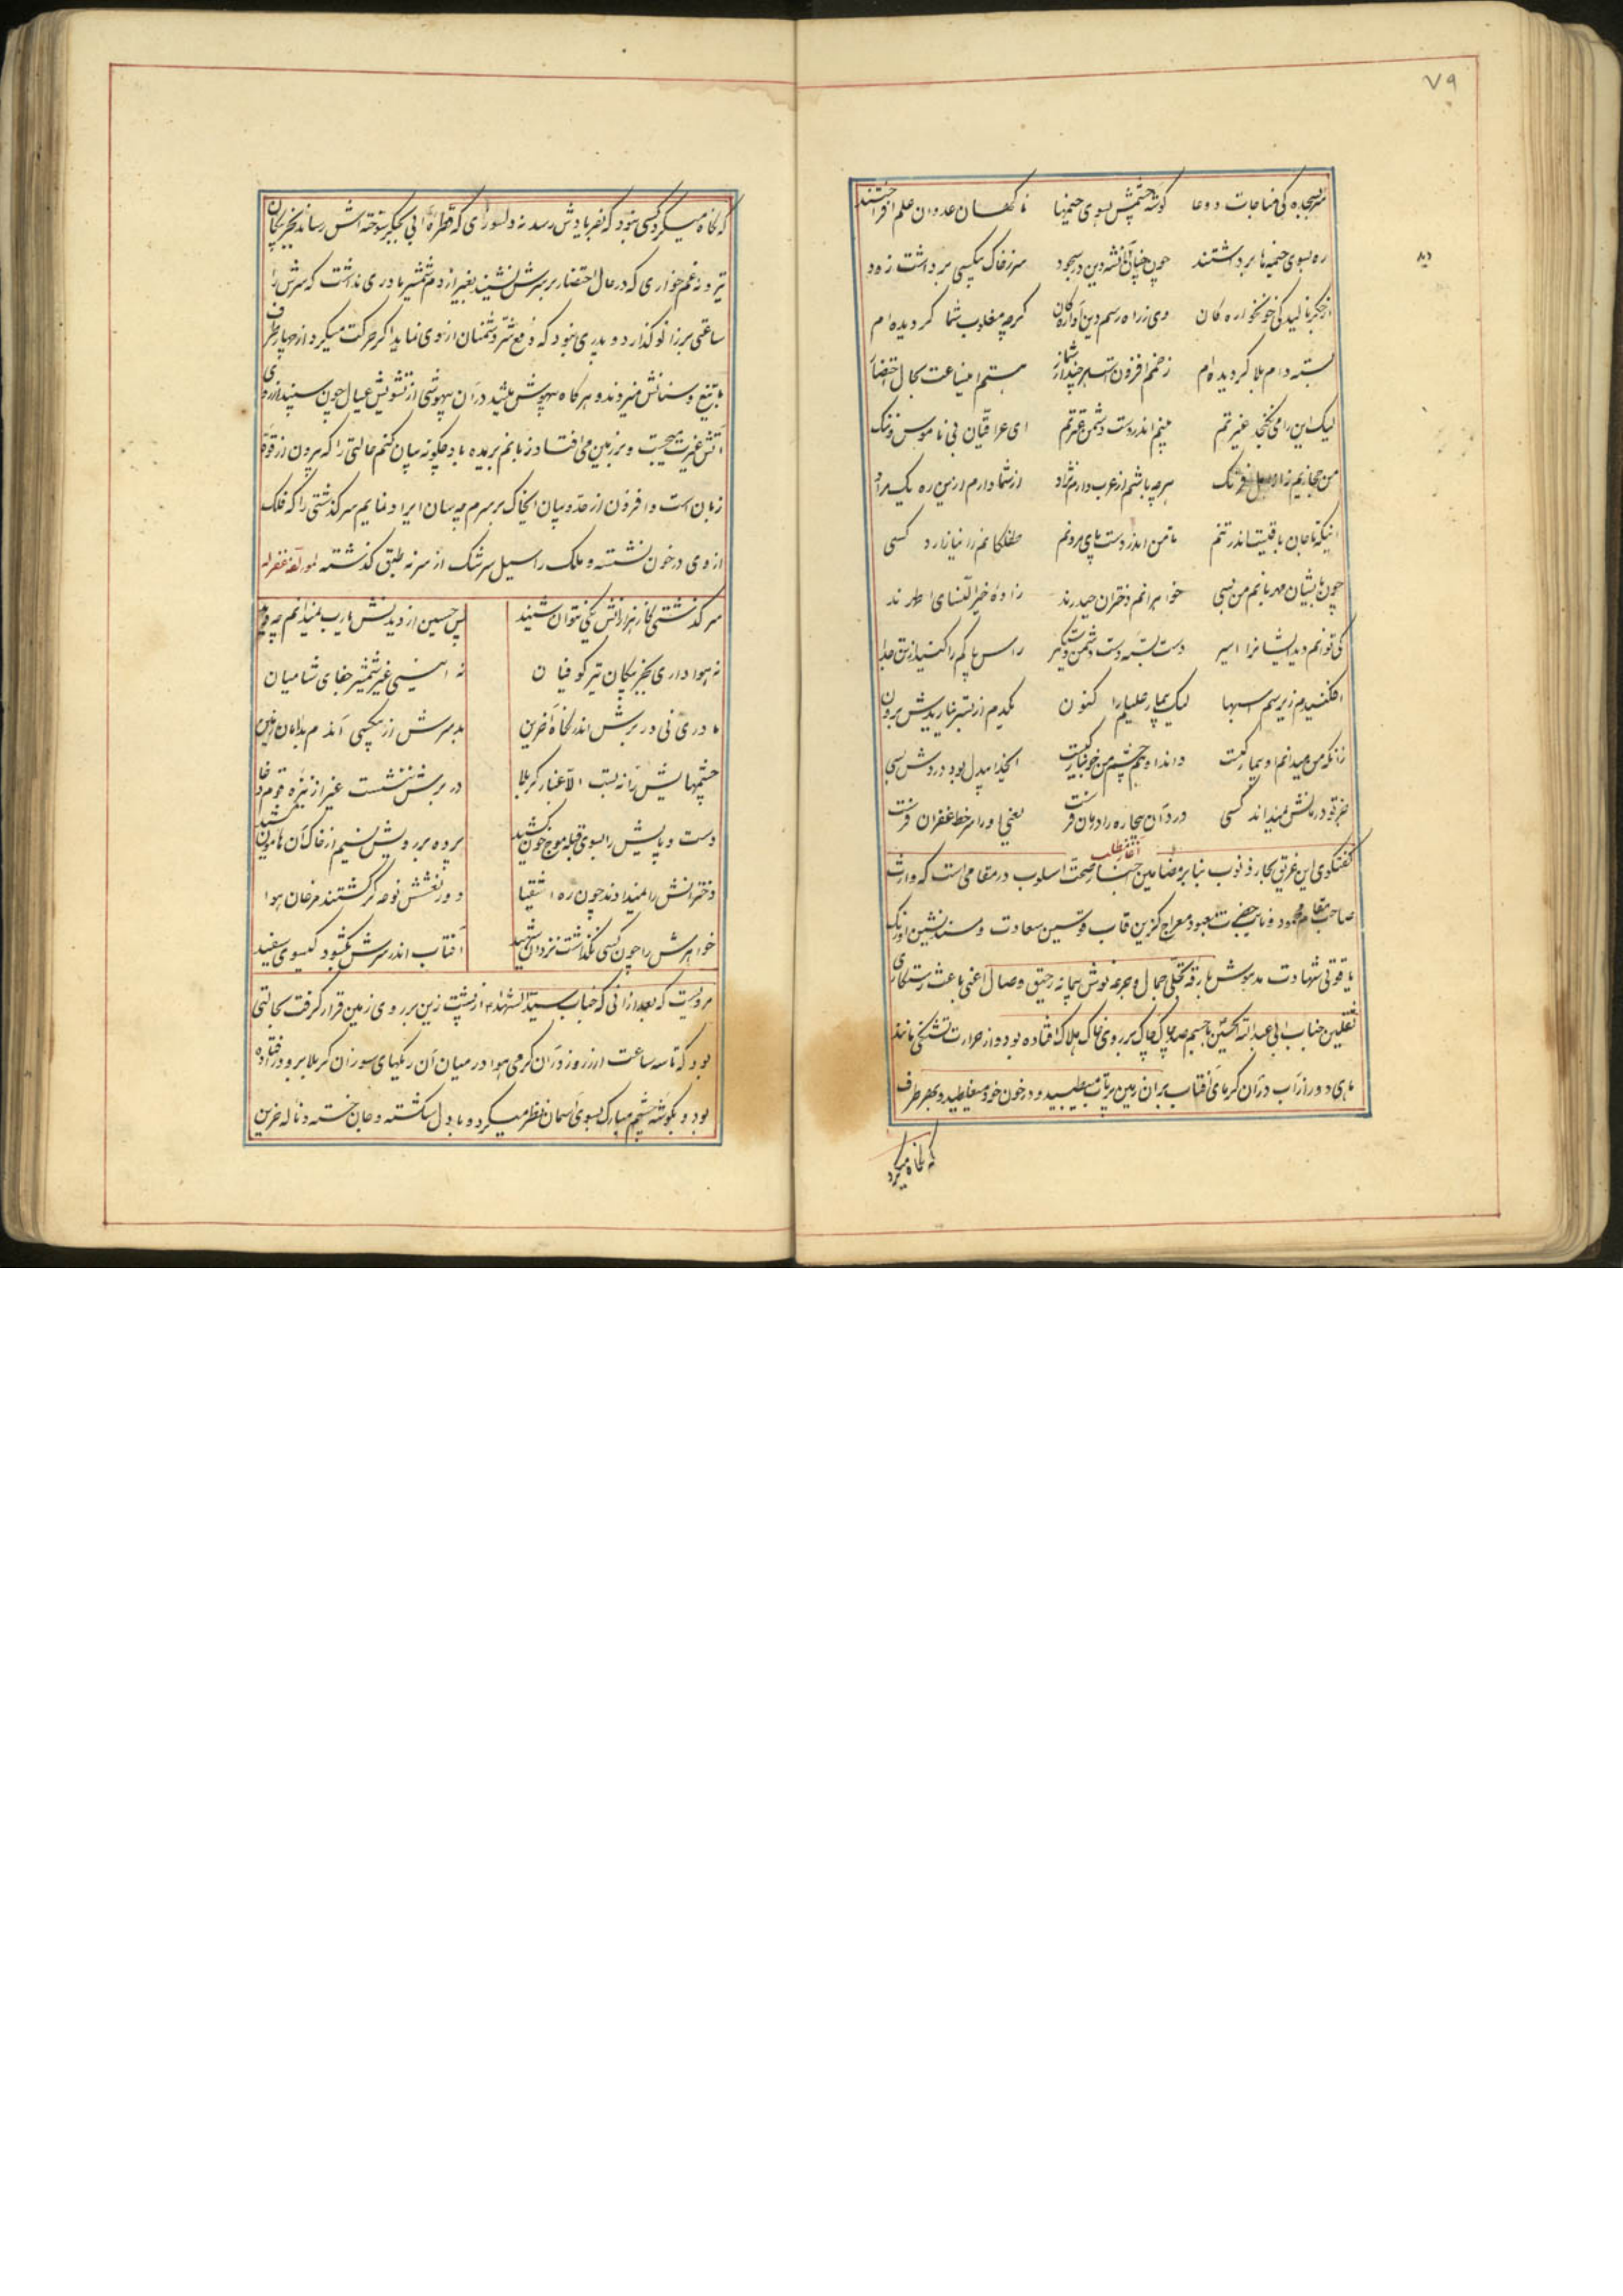 ۷۹
سر بسجده کی مناجات و دعا گوشه چشمش بسوی خیمها ناکهان عدوان علم افراشتند
ره بسوی خیمه ها برداشتند چون چنان آن شه دین در سجود سر ز خاک بیکسی برداشت زود
دید
از جگر نالید کی خونخواره کان وی ز راه رسم دین آواره کان گرچه مغلوب شما کردیده ام
بسته دام بلا کردیده ام زخمم افزون است هر چند از شمار هستم این ساعت بحال احتضار
لیک این را می نکنجد غیرتم بینم اندر دست دشمن عترتم ای عراقیان بی ناموس و ننک
من حجازیم نه از اهل فرنک هر چه باشم از عرب دارم نژاد از شما دارم ازین ره یک مراد
اینکه تا جان باقیست اندر تنم تا من اندر دست و پای مردنم طفلکانم را نیازارد کسی
چون بایشان مهربانم من بسی خواهرانم دختران حیدرند زاده خیر النسای اطهرند
کی توانم دید ایشانرا اسیر دست بسته دست دشمن دستکیر راس پاکم را کنید از تن جدا
افکنیدم زیر سم اسبها لیک بیمار علیلم را کنون یکدم از بستر نیاریدش برون
زانکه من میدانم او بیمار کیست داند او چشم من خونبار کیست ای خدا بیدل بود دردش بسی
جز تو درمانش نمیداند کسی درد آن بیچاره را درمان فرست یعنی او را سر خط غفران فرست
آغاز مطلب
گفتکوی این غریق بحار ذنوب بنا بر مضامین اخبار صحت اسلوب در مقامی است که وارث
صاحب مقام محمود و نایب حضرت معبود معراج کزین قاب قوسین سعادت و مسند نشین اورنک
یاقوتی شهادت مدهوش بارقه تجلی جمال و جرعه نوش پیمانه رحیق وصال اعنی باعث رستکاری
ثقلین جناب ابی عبد الله الحسین با جسم صد چاک بر روی خاک هلاک افتاده بود و از حرارت تشنکی مانند
ماهی دور از آب در آن کرمای آفتاب بر آن زمین پرتاب میطپید و در خون خود میغلطید و بهر طرف
که نکاه میکرد
که نکاه میکرد کسی نبود که بفریادش رسد نه دلسوزی که قطره آبی بجکر سوخته اش رساند بجز پیکان
تیر و نه غم خواری که در حال احتضار بر سرش نشیند بغیر از دم شمشیر مادری نداشت که سرش را
ساعتی بر زانو کذارد و پدری نبود که دفع شر دشمنان از وی نماید اکر حرکت میکرد از چهار طرف
با تیغ و سنانش میزدند و هر کاه بیهوش میشد در آن بیهوشی از تشویش عیال چون سپند از روی
آتش غیرت میجست و بر زمین می افتاد زبانم بریده باد چکونه بیان کنم حالتی را که بیرون از قوه
زبان است و افزون از حد و بیان ایخاک بر سرم چه سان ایراد نمایم سرکذشتی را که فلک
از وی در خون نشسته و ملک را سیل سرشک از سر نه طبق کذشته لمولفه غفر له
سرکذشتی کاز هزارانش یکی نتوان شنید پس حسین از دیدنش یارب نمیدانم چه دید
نه هوا داری بجز پیکان تیر کوفیان نه انیسی غیر شمشیر جفای شامیان
مادری نی در برش اندر نکاه آخرین بد سرش از بیکسی آندم بدامان زمین
چشمهایش را نه بست الا غبار کربلا در برش ننشست غیر از نیزه قوم دغا
دست و پایش را بسوی قبله موج خون کشید پرده بر رویش نسیم از خاک آن هامون کشید
دخترانش را نمیدادند چون ره اشقیا دور نعشش نوحه کر کشتند مرغان هوا
خواهرش را چون کسی نکذاشت نزد آن شهید آفتاب اندر سرش بکشود کیسوی سفید
مرویست که بعد از آنی که جناب سید الشهداء از پشت زین بر روی زمین قرار کرفت بحالتی
بود که تا سه ساعت از روز در آن کرمی هوا در میان آن ریکهای سوزان کربلا برو در افتاده
بود و بکوشه چشم مبارک بسوی آسمان نظر میکرد و با دل شکسته و جان خسته و ناله حزین